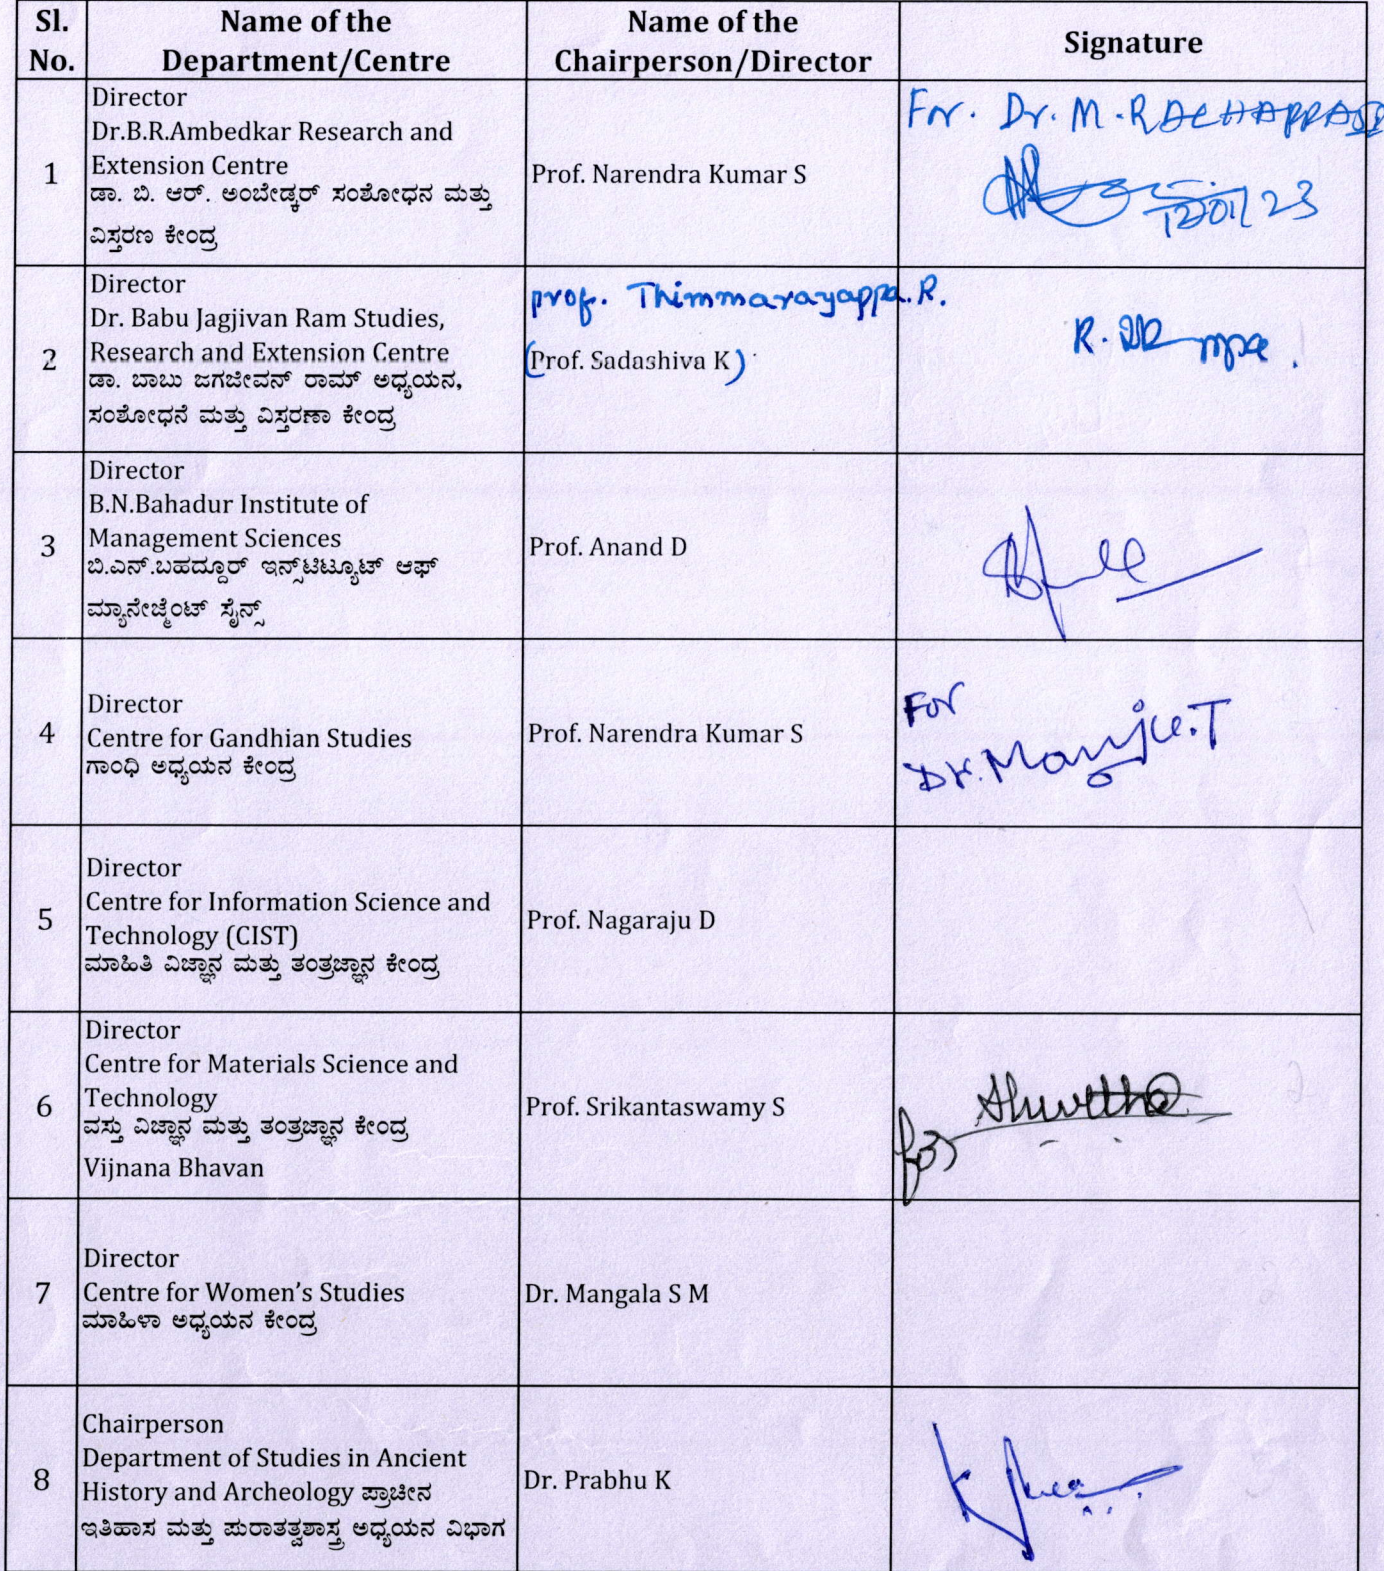 Sl.
No.
Name of the
Department/Centre
Name of the
Chairperson/Director
Signature
1
Director
Dr.B.R.Ambedkar Research and
Extension Centre
ಡಾ. ಬಿ. ಆರ್. ಅಂಬೇಡ್ಕರ್ ಸಂಶೋಧನ ಮತ್ತು
ವಿಸ್ತರಣ ಕೇಂದ್ರ
Prof. Narendra Kumar S
For. Dr. M.
23
2
Director
Dr. Babu Jagjivan Ram Studies,
Research and Extension Centre
ಡಾ. ಬಾಬು ಜಗಜೀವನ್ ರಾಮ್ ಅಧ್ಯಯನ,
ಸಂಶೋಧನೆ ಮತ್ತು ವಿಸ್ತರಣಾ ಕೇಂದ್ರ
prof. Thimmarayappa.R.
(Prof. Sadashiva K)
3
Director
B.N.Bahadur Institute of
Management Sciences
ಬಿ.ಎನ್.ಬಹದ್ದೂರ್ ಇನ್ಸ್‌ಟಿಟ್ಯೂಟ್ ಆಫ್
ಮ್ಯಾನೇಜ್ಮೆಂಟ್ ಸೈನ್ಸ್
Prof. Anand D
4
Director
Centre for Gandhian Studies
ಗಾಂಧಿ ಅಧ್ಯಯನ ಕೇಂದ್ರ
Prof. Narendra Kumar S
For
Dr. Manju.T
5
Director
Centre for Information Science and
Technology (CIST)
ಮಾಹಿತಿ ವಿಜ್ಞಾನ ಮತ್ತು ತಂತ್ರಜ್ಞಾನ ಕೇಂದ್ರ
Prof. Nagaraju D
6
Director
Centre for Materials Science and
Technology
ವಸ್ತು ವಿಜ್ಞಾನ ಮತ್ತು ತಂತ್ರಜ್ಞಾನ ಕೇಂದ್ರ
Vijnana Bhavan
Prof. Srikantaswamy S
for
7
Director
Centre for Women’s Studies
ಮಾಹಿಳಾ ಅಧ್ಯಯನ ಕೇಂದ್ರ
Dr. Mangala S M
8
Chairperson
Department of Studies in Ancient
History and Archeology ಪ್ರಾಚೀನ
ಇತಿಹಾಸ ಮತ್ತು ಪುರಾತತ್ವಶಾಸ್ತ್ರ ಅಧ್ಯಯನ ವಿಭಾಗ
Dr. Prabhu K